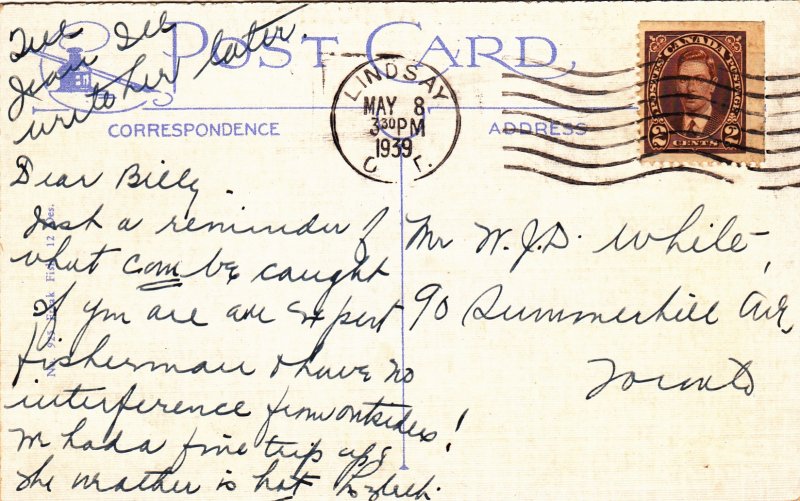 Tell
Jean I'll
write her later.
POST CARD
LINDSAY
MAY 8
3 30 PM
1939
POSTES CANADA POSTAGE
2 CENTS 2
CORRESPONDENCE
ADDRESS
Dear Billy
Just a reminder of
what can be caught
if you are an expert
fisherman & have no
interference from outsiders!
We had a fine trip up &
the weather is hot
Mr W. J. D. White,
90 Summerhill Ave,
Toronto
Freak Fish 12 Des.